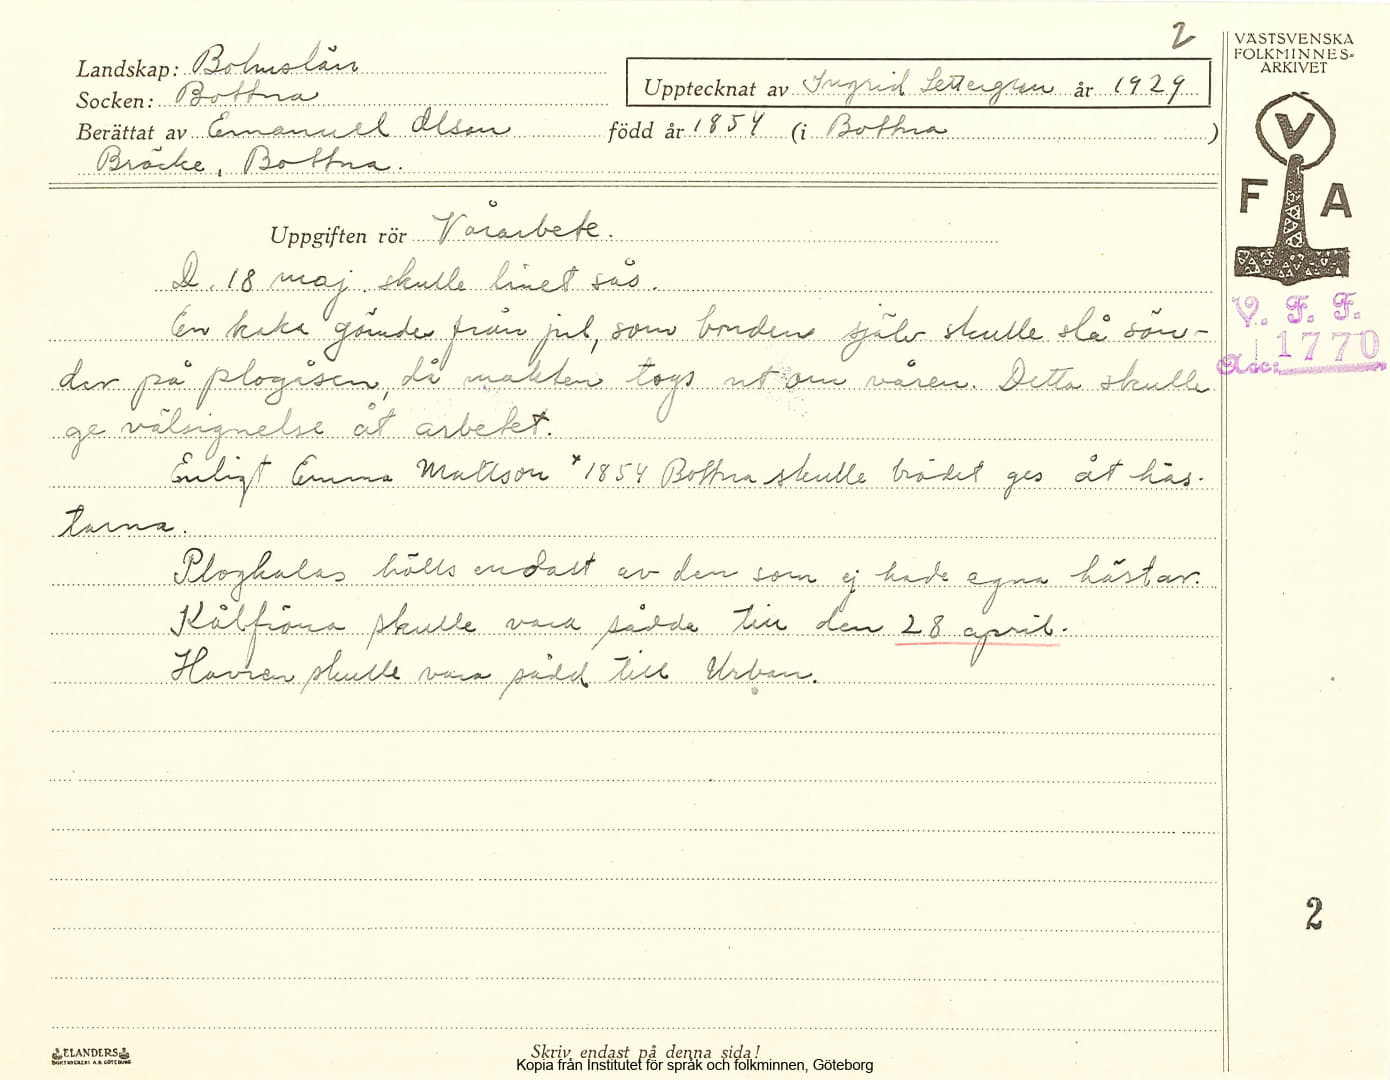 2
VÄSTSVENSKA
FOLKMINNES-
ARKIVET
Landskap: Bohuslän
Socken: Bottna
Upptecknat av Ingrid Settergren år 1929
Berättat av Emanuel Olson född år 1854 (i Bottna )
Bräcke, Bottna.
V
F A
Uppgiften rör Vårarbete.
D. 18 maj skulle linet sås.
V. F. F.
En kaka gömdes från jul, som bonden själv skulle slå sön-
Acc: 1770
der på plogåsen, då makten togs ut om våren. Detta skulle
ge välsignelse åt arbetet.
Enligt Emma Mattson * 1854 Bottna skulle brödet ges åt häs-
tarna.
Plogkalas hölls endast av den som ej hade egna hästar.
Kålfröna skulle vara sådda till den 28 april.
Havren skulle vara sådd till Urban.
2
ELANDERS
BOKTRYCKERI A.B. GÖTEBORG
Skriv endast på denna sida!
Kopia från Institutet för språk och folkminnen, Göteborg